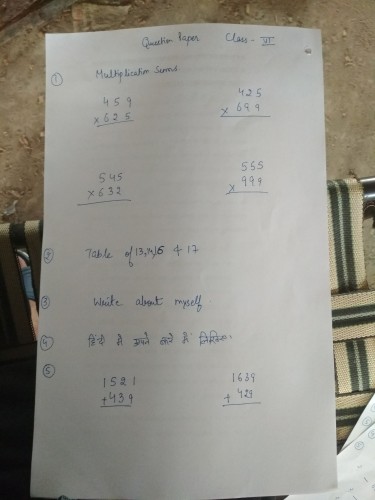 Question Paper Class - VI
① Multiplication Sums
459 425
x 625 x 699
545 555
x 632 x 999
② Table of 13,14,15 & 17
③ Write about myself.
④ हिंदी में अपने बारे में लिखिए।
⑤
1521 1639
+439 + 429